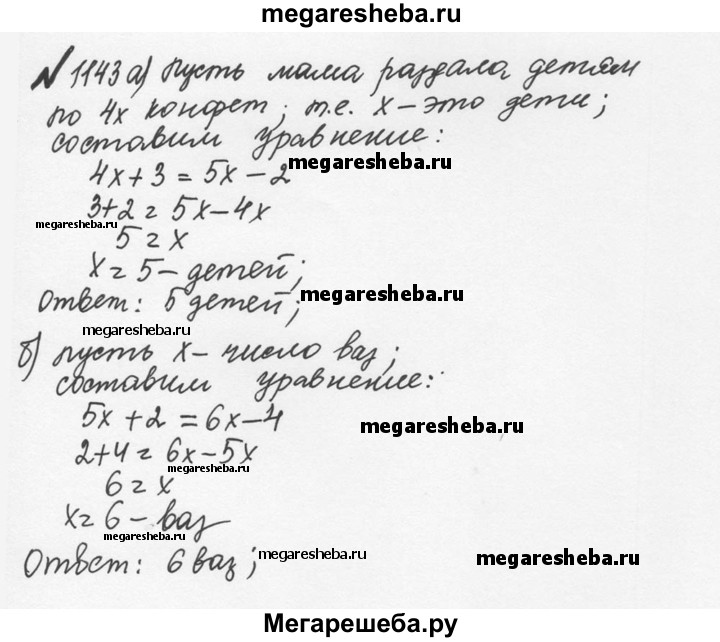 megaresheba.ru
№ 1143 а) пусть мама раздала детям
по 4х конфет; т.е. х – это дети;
составим уравнение:
megaresheba.ru
4х + 3 = 5х – 2
3 + 2 = 5х – 4х
megaresheba.ru
5 = х
х = 5 – детей;
Ответ: 5 детей;
megaresheba.ru
megaresheba.ru
б) пусть х – число ваз;
составим уравнение:
5х + 2 = 6х – 4
megaresheba.ru
2 + 4 = 6х – 5х
megaresheba.ru
6 = х
х = 6 – ваз
Ответ: 6 ваз;
megaresheba.ru
megaresheba.ru
Мегарешеба.ру